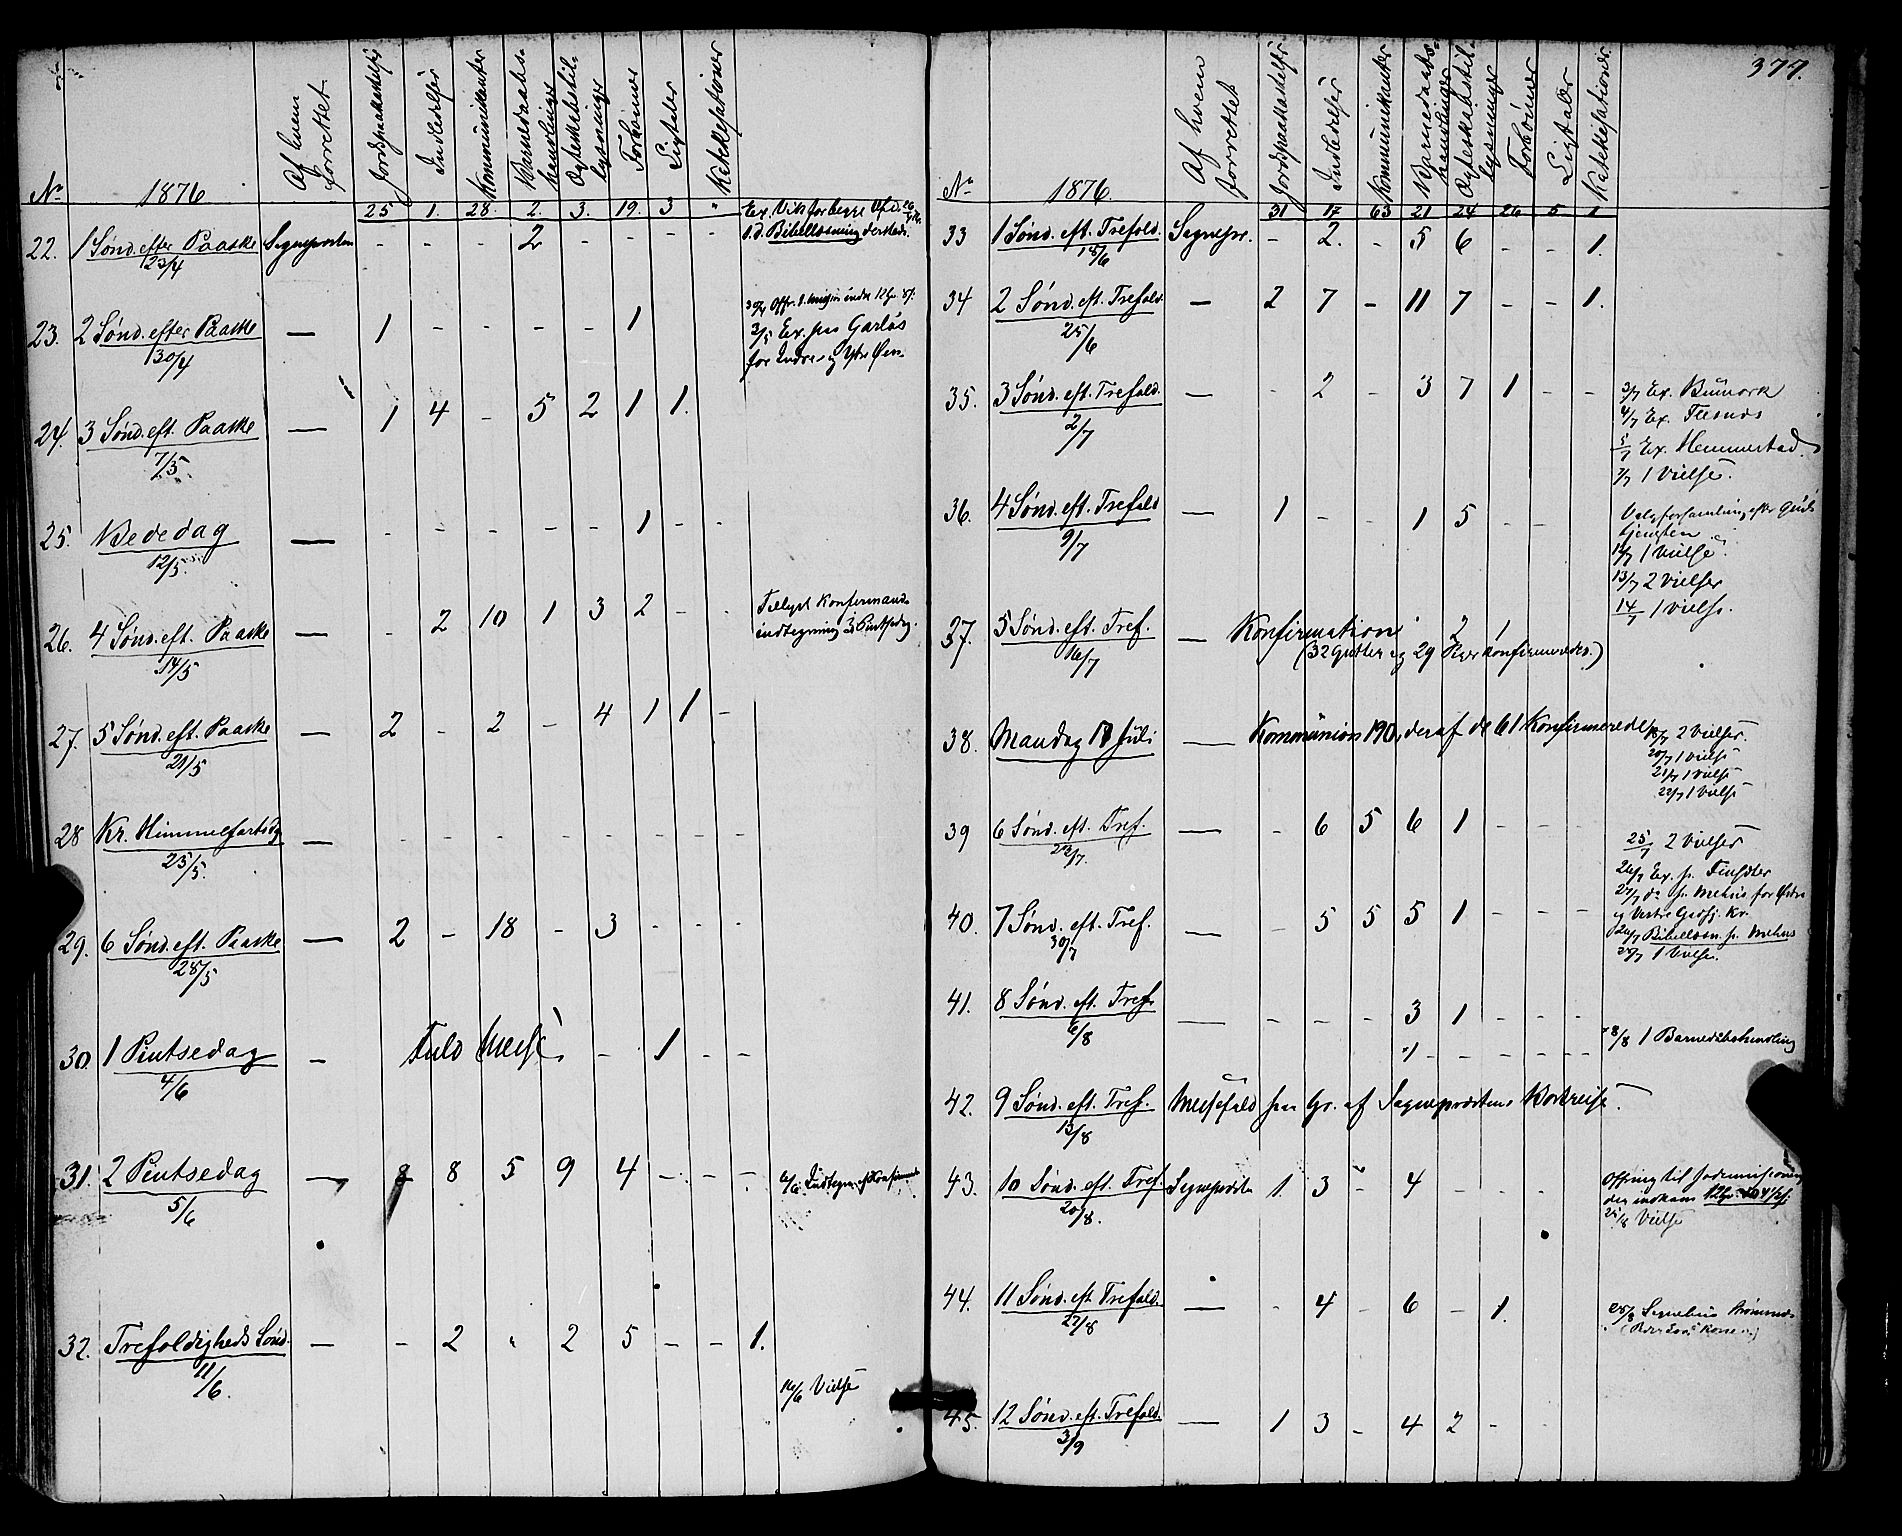 No 1876 Af hvem forrettet Jordspaakastelser Indledelser Kommunikanter Barnedaabshandlinger Ægteskabstillysninger Forbønner Ligtaler Katekisationer
25 1. 28. 2. 3. 19. 3 "
22. 1 Sønd. efter Paaske 23/4 Sognepresten - - - 2 - - - -
Ex. Vik for begge
s.d. Bibellæsning dersteds.
23. 2 Sønd. efter Paaske 30/4 — 1 - - - - 1
3/5 Ex. paa Garlos
for Indre- og Ytre
24. 3 Sønd. eft. Paaske 7/5 — 1 4 - 5 2 1 1.
25. Bededag 12/5 — - - - - - 1 - -
26. 4 Sønd. eft. Paaske 14/5 — - 2 10 1 3 2 - -
Tillyst Konfirmand-
indtegning 3d Pintsedag.
27. 5 Sønd. eft. Paaske 21/5 — 2 - 2 - 4 1 1 -
28 Kr. Himmelfartsdg 25/5. — - - - - - - - -
29. 6 Sønd. eft. Paaske 28/5 — 2 - 18 - 3 - - -
30. 1 Pintsedag 4/6 - 1 - -
31. 2 Pintsedag 5/6 — 8 8 5 9 4 - - -
6/6 Indtegn. af Konfirmand
32. Trefoldigheds Sønd. 11/6. — - 2 " 2 5 - - 1.
16/6 Vielse
377.
No 1876. Af hvem forrettet Jordspaakastelser Indledelser Kommunikanter Barnedaabshandlinger Ægteskabstillysninger Forbønner Ligtaler Katekisationer
31 17 63 21 24 26 5 1
33 1 Sønd. eft. Trefold. 18/6 Sognepr. - 2. - 5 6 - - 1.
34 2 Sønd. eft. Trefold. 25/6 — 2 7 - 11 7 - - 1.
35. 3 Sønd. eft. Trefold. 2/7 — - 2 - 3 7 1 - -
3/7 Ex. Bumark
4/7 Ex. Flesnes
5/7 Ex. Hemmestad.
7/7 1 Vielse.
36. 4 Sønd. eft. Trefold 9/7 — 1 - - 1 5 - -
Valgforsamling efter Guds
tjenesten
1 Vielse.
13/7 2 Vielser
14/7 1 Vielse.
37. 5 Sønd. eft. Tref. 16/7 — Konfirmation 2 1
(32 Gutter og 29 Piger konfirmeredes.)
38. Mandag 17 Juli — Kommunion 190, deraf de 61 Konfirmerede
18/7 2 Vielser.
20/7 1 Vielse
21/7 1 Vielse
22/7 1 Vielse
39 6 Sønd. eft. Tref. 23/7. — - 6 5 6 1 - - -
25/7 2 Vielser
26/7 Ex. p.
27/7 do p. Mehus for
og Vestre
Bibellæsn. p. Mehus
1 Vielse.
40. 7 Sønd. eft. Tref. 30/7 — - 5 5 5 1 - - -
41. 8 Sønd. eft. Tref. 6/8 — - - - 3 1 - - -
1 - - - -
8/8 1 Barnedåbshandling
42. 9 Sønd. eft. Tref. 13/8 Messefald paa Gr. af Sogneprestens Bortreise.
43. 10 Sønd. eft. Tref. 20/8. Sognepresten 1. 3 - 4 - - -
Offring til Jødemissionen
der indkom
Vielse
44. 11 Sønd. eft. Trefold. 27/8 — - 4 - 6 - 1.
45. 12 Sønd. eft. Trefold. 3/9 — 1 3 - 4 2 - -